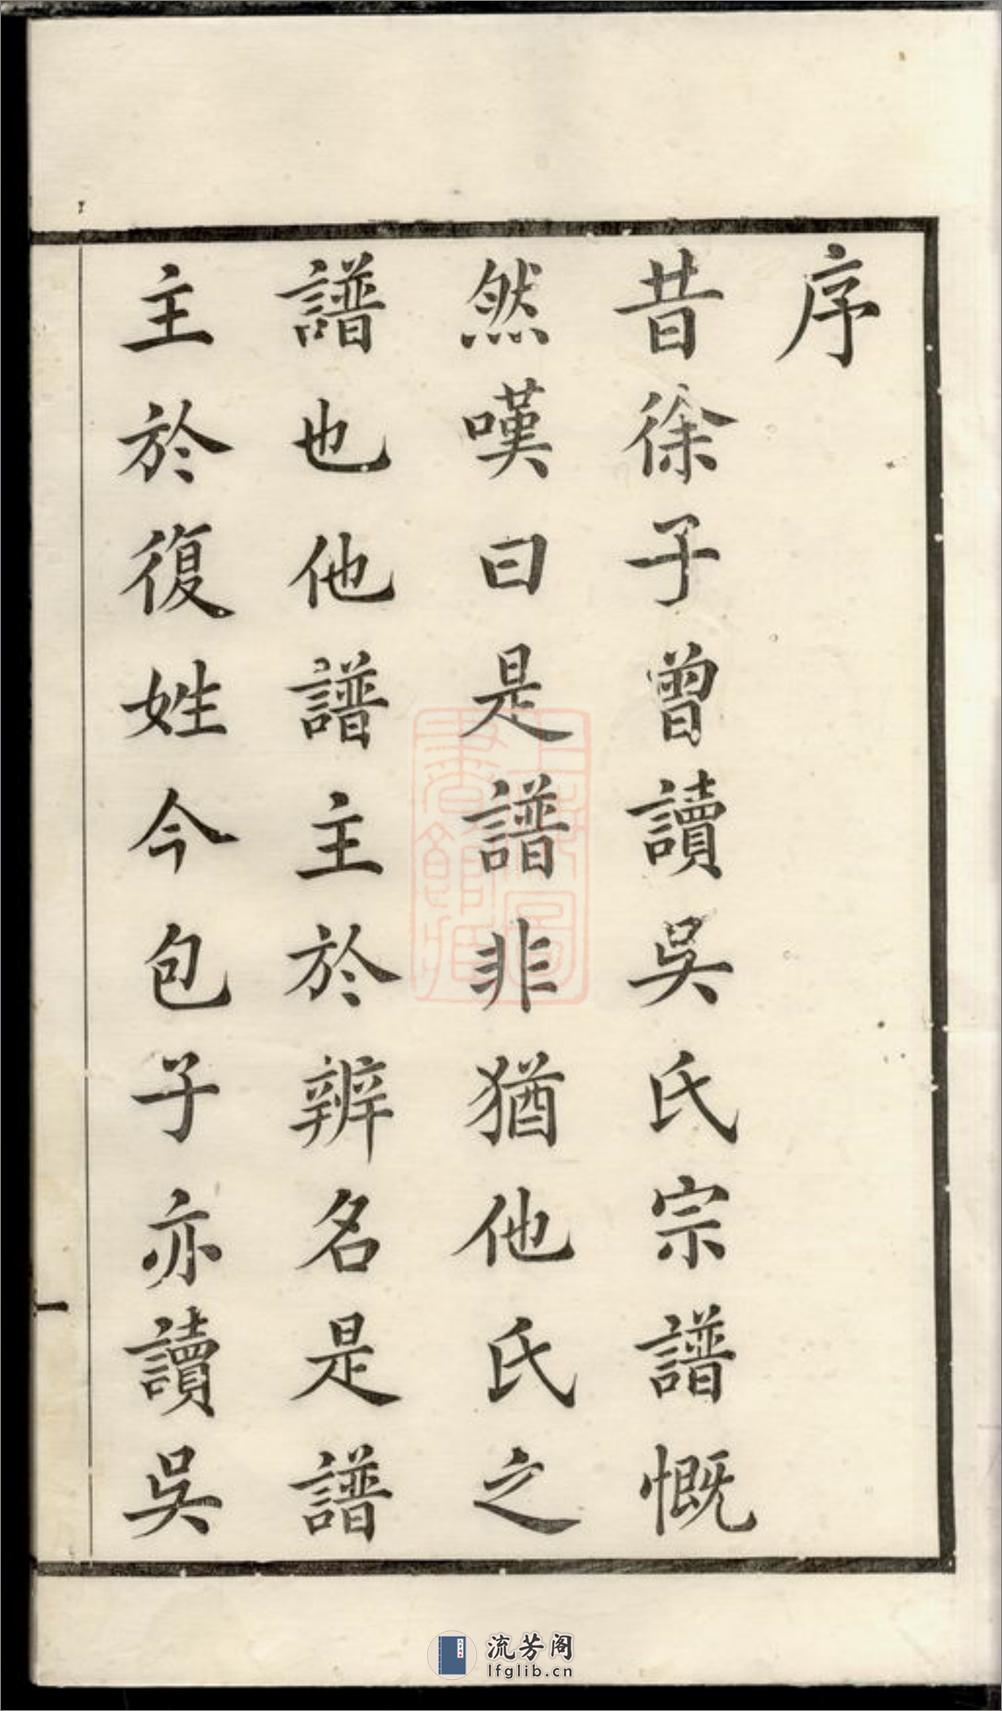 序
昔徐子曾讀吳氏宗譜慨
然嘆曰是譜非猶他氏之
譜也他譜主於辨名是譜
主於復姓今包子亦讀吳
一
上海圖書館藏
流芳阁
lfglib.cn